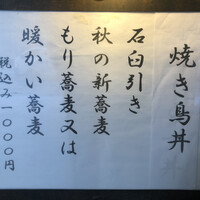 焼き鳥丼
石臼引き
秋の新蕎麦
もり蕎麦又は
暖かい蕎麦
税込み一〇〇〇円